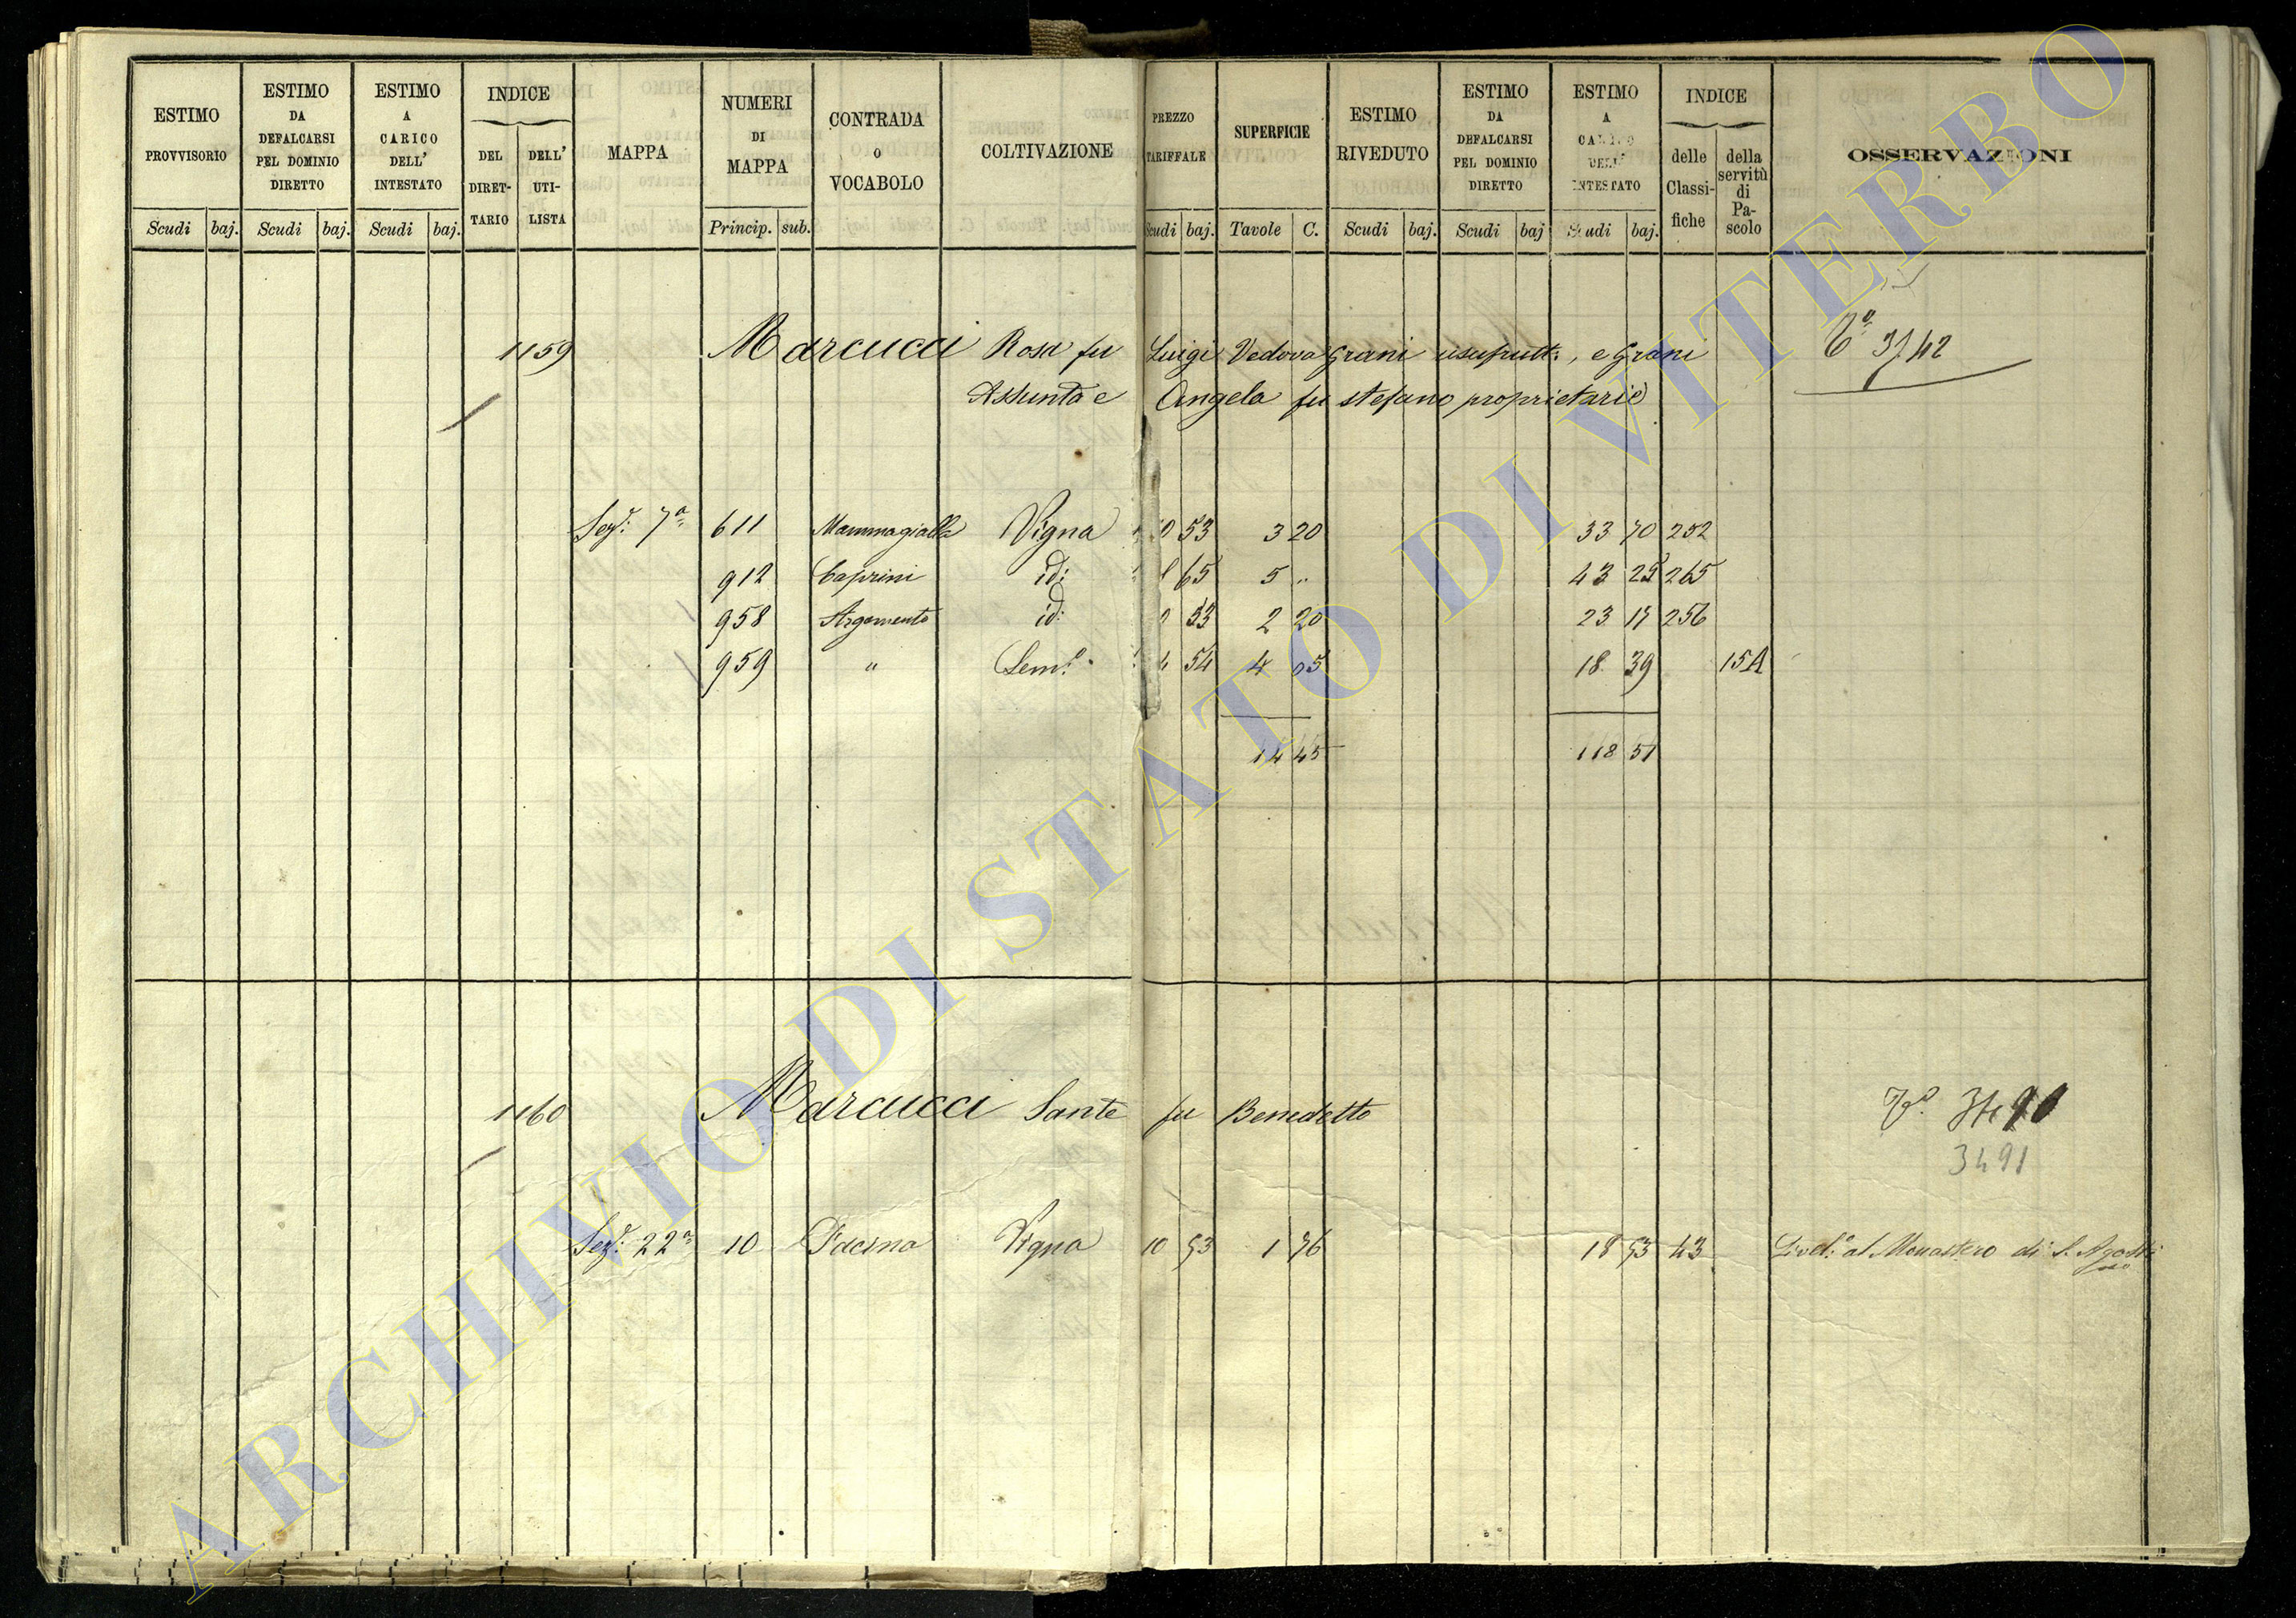 ESTIMO PROVVISORIO
Scudi baj.
ESTIMO DA DEFALCARSI PEL DOMINIO DIRETTO
Scudi baj.
ESTIMO A CARICO DELL' INTESTATO
Scudi baj.
INDICE
DEL DIRET- TARIO
DELL' UTI- LISTA
MAPPA
NUMERI DI MAPPA
Princip. sub.
CONTRADA O VOCABOLO
COLTIVAZIONE
PREZZO TARIFFALE
Scudi baj.
SUPERFICIE
Tavole C.
ESTIMO RIVEDUTO
Scudi baj.
ESTIMO DA DEFALCARSI PEL DOMINIO DIRETTO
Scudi baj
ESTIMO A CARICO DELL' INTESTATO
Scudi baj.
INDICE
delle Classi- fiche
della servitù di Pa- scolo
OSSERVAZIONI
1159 Marcucci Rosa fu Luigi Vedova Grani usufrutt:, e Grani
Assunta e Angela fu Stefano proprietarie
Sez: 7a 611 Mammagialla Vigna 53 3 20 33 70 252
912 Caprini id: 65 5 " 43 25 265
958 Argomento id: 53 2 20 23 17 256
959 " Sem. 54 4 05 18 39 15A
14 45 118 51
1160 Marcucci Sante fu Benedetto
3491
Sez: 22a 10 Facina Vigna 10 53 1 76 18 53 43 Livel: al Monastero di S. Agostino
ARCHIVIO DI STATO DI VITERBO